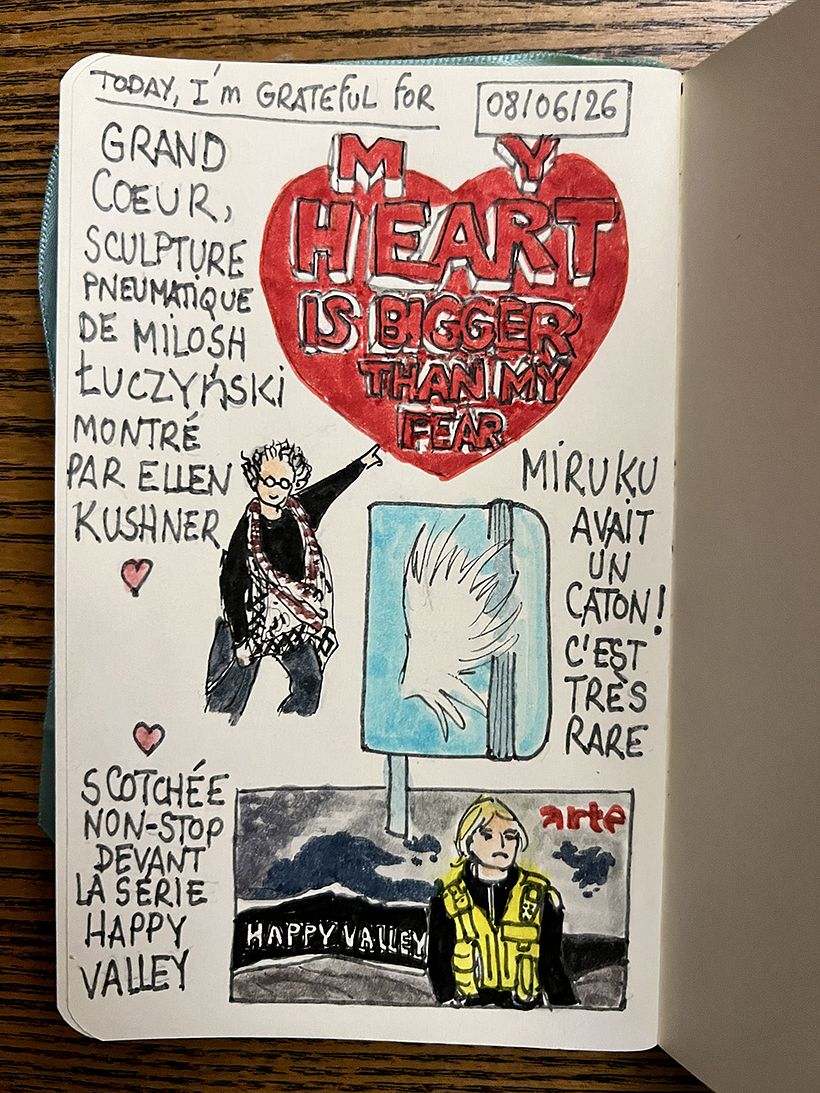 TODAY, I'm GRATEFUL FOR
08/06/26
GRAND
COEUR,
SCULPTURE
PNEUMATIQUE
DE MILOSH
ŁUCZYŃSKI
MONTRÉ
PAR ELLEN
KUSHNER
MY
HEART
IS BIGGER
THAN MY
FEAR
MIRUKU
AVAIT
UN
CATON!
C'EST
TRÈS
RARE
SCOTCHÉE
NON-STOP
DEVANT
LA SÉRIE
HAPPY
VALLEY
arte
HAPPY VALLEY